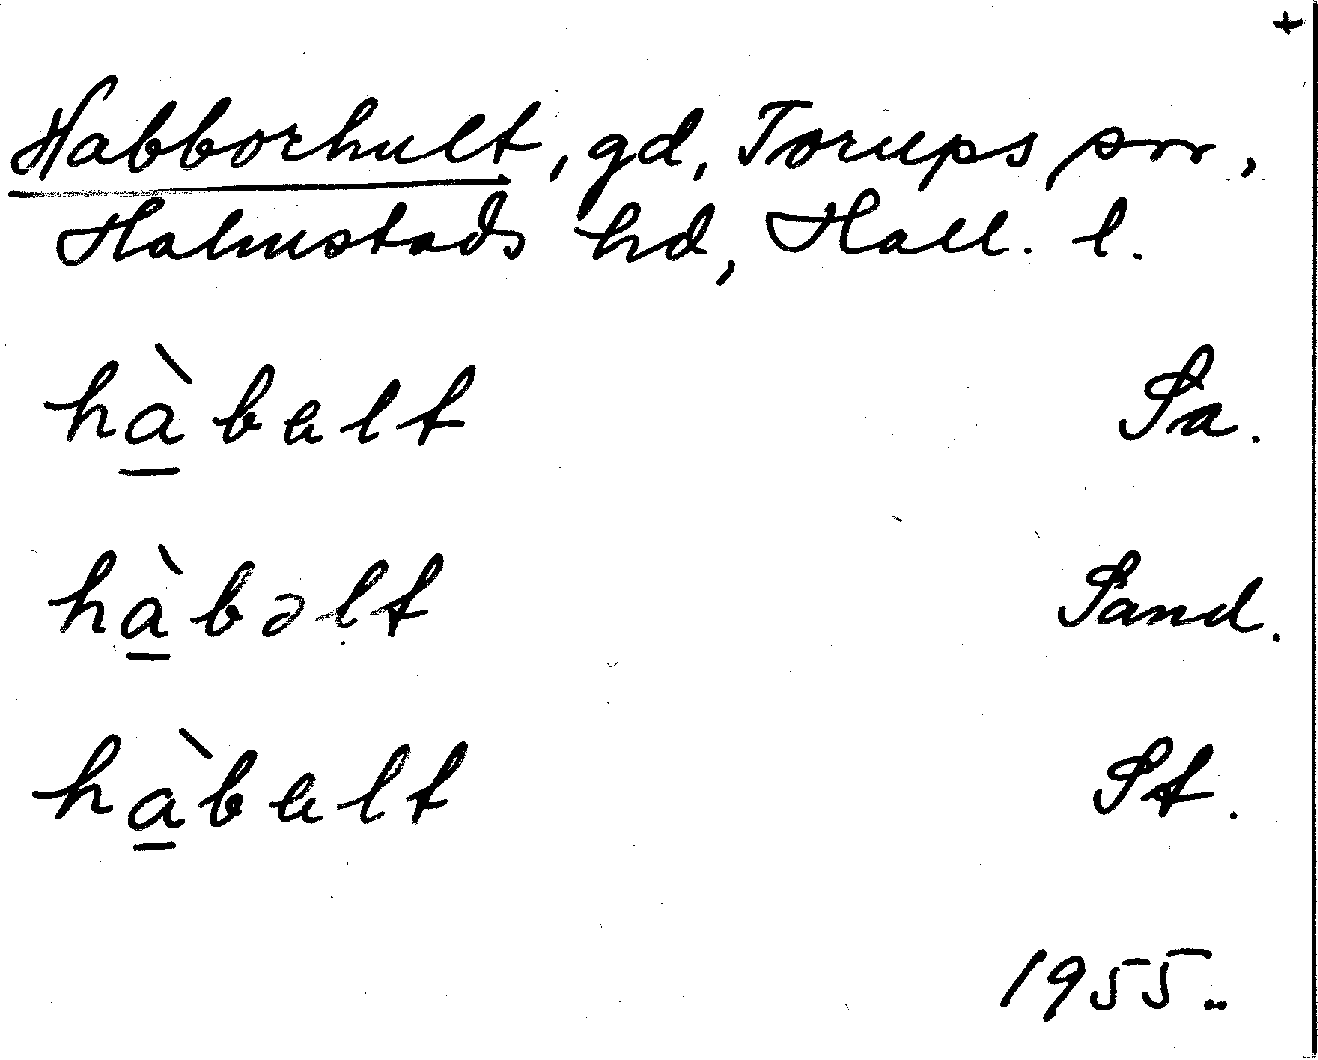 +
Habborhult, gd, Torups sn,
Halmstads hd, Hall. l.
hà̱bɐlt Sa.
hà̱bəlt Sand.
hà̱bɐlt St.
1955.